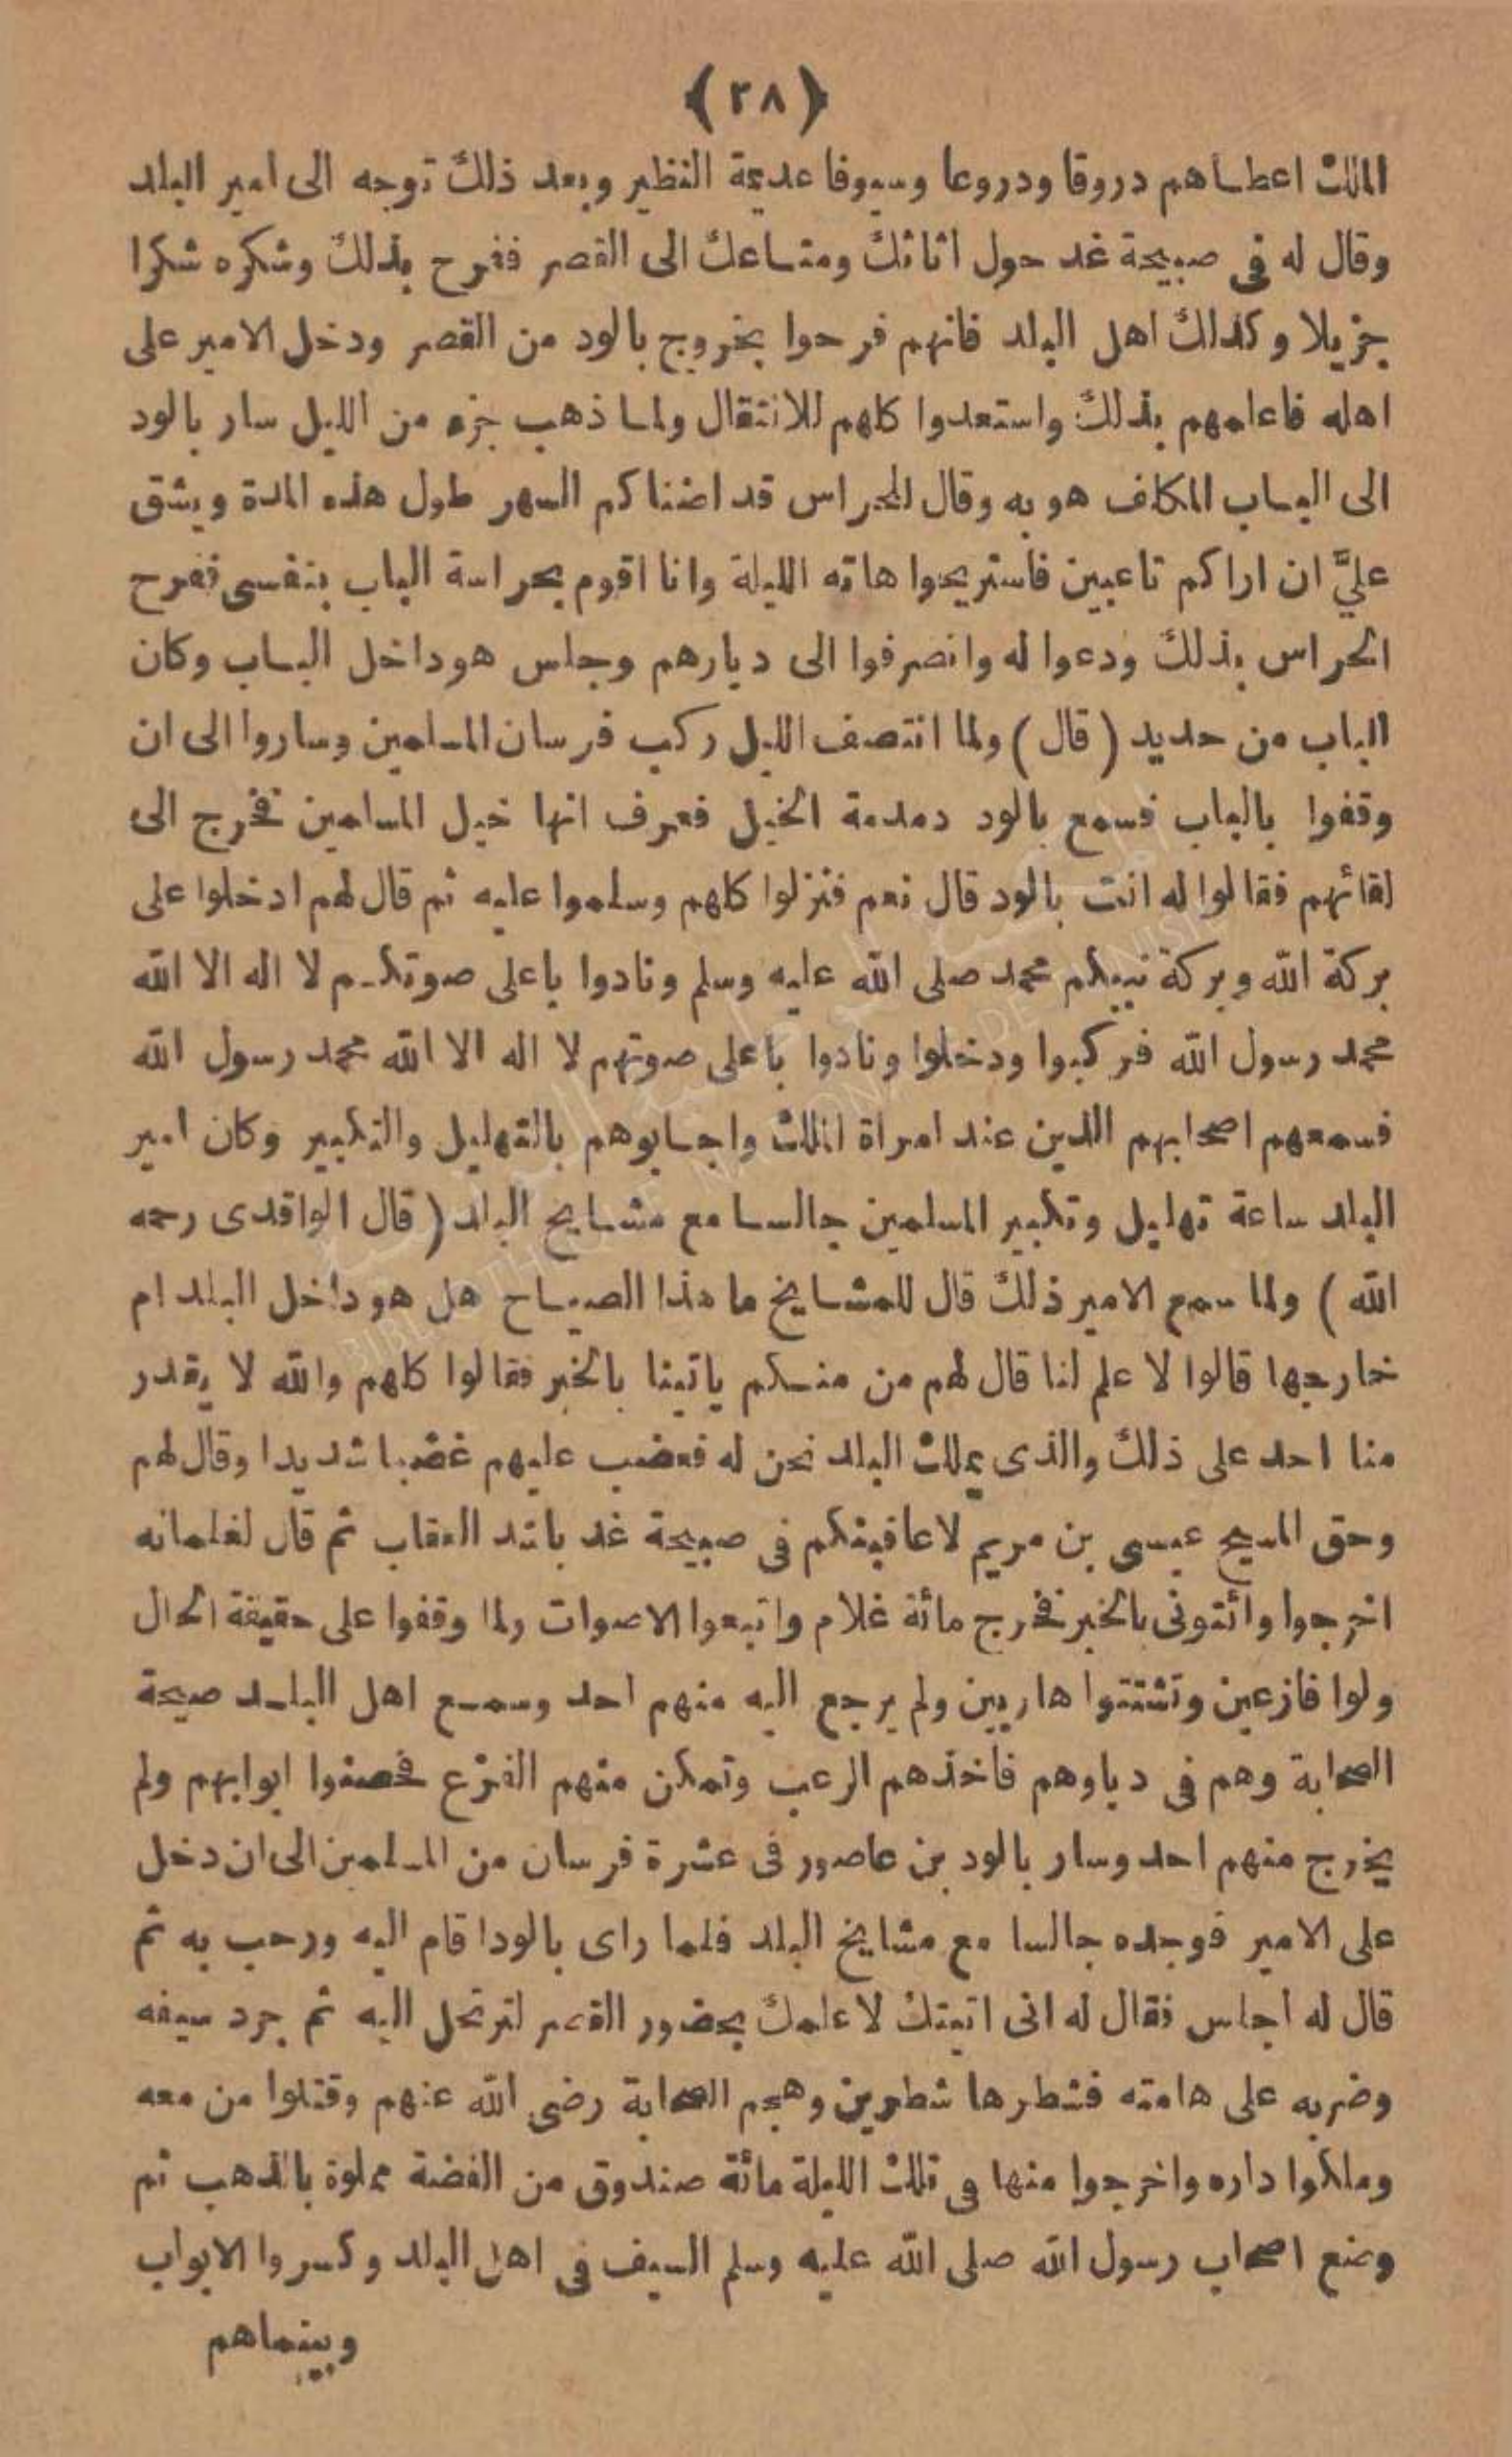 ﴿٢٨﴾
الملك اعطاهم دروقا ودروعا وسيوفا عديمة النظير وبعد ذلك توجه الى امير البلد
وقال له فى صبيحة غد حول اثاثك ومتاعك الى القصر ففرح بذلك وشكره شكرا
جزيلا وكذلك اهل البلد فانهم فرحوا بخروج بالود من القصر ودخل الامير على
اهله فاعلمهم بذلك واستعدوا كلهم للانتقال ولما ذهب جزء من الليل سار بالود
الى الباب المكلف هو به وقال للحراس قد اضناكم السهر طول هذه المدة ويشق
عليَّ ان اراكم تاعبين فاستريحوا هاته الليلة وانا اقوم بحراسة الباب بنفسى ففرح
الحراس بذلك ودعوا له وانصرفوا الى ديارهم وجلس هو داخل الباب وكان
الباب من حديد (قال) ولما انتصف الليل ركب فرسان المسلمين وساروا الى ان
وقفوا بالباب فسمع بالود دمدمة الخيل فعرف انها خيل المسلمين فخرج الى
لقائهم فقالوا له انت بالود قال نعم فنزلوا كلهم وسلموا عليه ثم قال لهم ادخلوا على
بركة الله وبركة نبيكم محمد صلى الله عليه وسلم ونادوا باعلى صوتكم لا اله الا الله
محمد رسول الله فركبوا ودخلوا ونادوا باعلى صوتهم لا اله الا الله محمد رسول الله
فسمعهم اصحابهم الذين عند امراة الملك واجابوهم بالتهليل والتكبير وكان امير
البلد ساعة تهليل وتكبير المسلمين جالسا مع مشايخ البلد (قال الواقدى رحمه
الله) ولما سمع الامير ذلك قال للمشايخ ما هذا الصياح هل هو داخل البلد ام
خارجها قالوا لا علم لنا قال لهم من منكم ياتينا بالخبر فقالوا كلهم والله لا يقدر
منا احد على ذلك والذى يملك البلد نحن له فغضب عليهم غضبا شديدا وقال لهم
وحق المسيح عيسى بن مريم لاعاقبنكم فى صبيحة غد باشد العقاب ثم قال لغلمانه
اخرجوا وائتونى بالخبر فخرج مائة غلام واتبعوا الاصوات ولما وقفوا على حقيقة الحال
ولوا فازعين وتشتتوا هاربين ولم يرجع اليه منهم احد وسمع اهل البلد صيحة
الصحابة وهم فى دياوهم فاخذهم الرعب وتمكن منهم الفزع فحصنوا ابوابهم ولم
يخرج منهم احد وسار بالود بن عاصور فى عشرة فرسان من المسلمين الى ان دخل
على الامير فوجده جالسا مع مشايخ البلد فلما راى بالودا قام اليه ورحب به ثم
قال له اجلس فقال له انى اتيتك لاعلمك بحضور القصر لترتحل اليه ثم جرد سيفه
وضربه على هامته فشطرها شطرين وهجم الصحابة رضى الله عنهم وقتلوا من معه
وملكوا داره واخرجوا منها فى تلك الليلة مائة صندوق من الفضة مملوة بالذهب ثم
وضع اصحاب رسول الله صلى الله عليه وسلم السيف فى اهل البلد وكسروا الابواب
وبينماهم